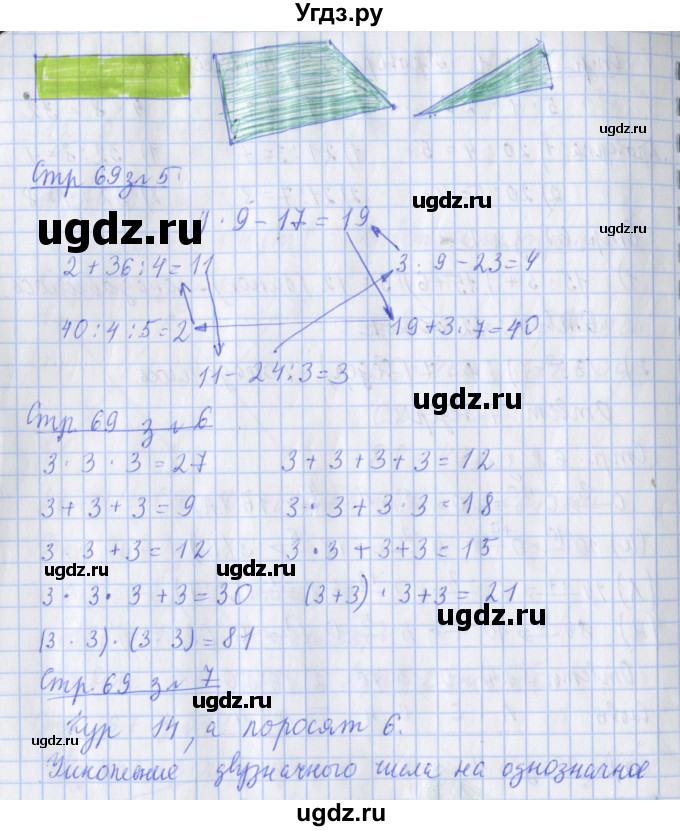 Угдз.ру
ugdz.ru
Стр 69 зл 5
ugdz.ru
ugdz.ru
ugdz.ru
4 · 9 - 17 = 19
2 + 36 : 4 = 11
3 · 9 - 23 = 4
40 : 4 : 5 = 2
19 + 3 · 7 = 40
11 - 24 : 3 = 3
ugdz.ru
Стр 69 з л 6
3 · 3 · 3 = 27
3 + 3 + 3 + 3 = 12
3 + 3 + 3 = 9
3 · 3 + 3 · 3 = 18
3 · 3 + 3 = 12
3 · 3 + 3 + 3 = 15
ugdz.ru
ugdz.ru
3 · 3 · 3 + 3 = 30
(3 + 3) · 3 + 3 = 21
ugdz.ru
(3 · 3) · (3 · 3) = 81
Стр. 69 з л 7
ugdz.ru
Кур 14, а поросят 6.
ugdz.ru
ugdz.ru
Умножение двузначного числа на однозначное
ugdz.ru